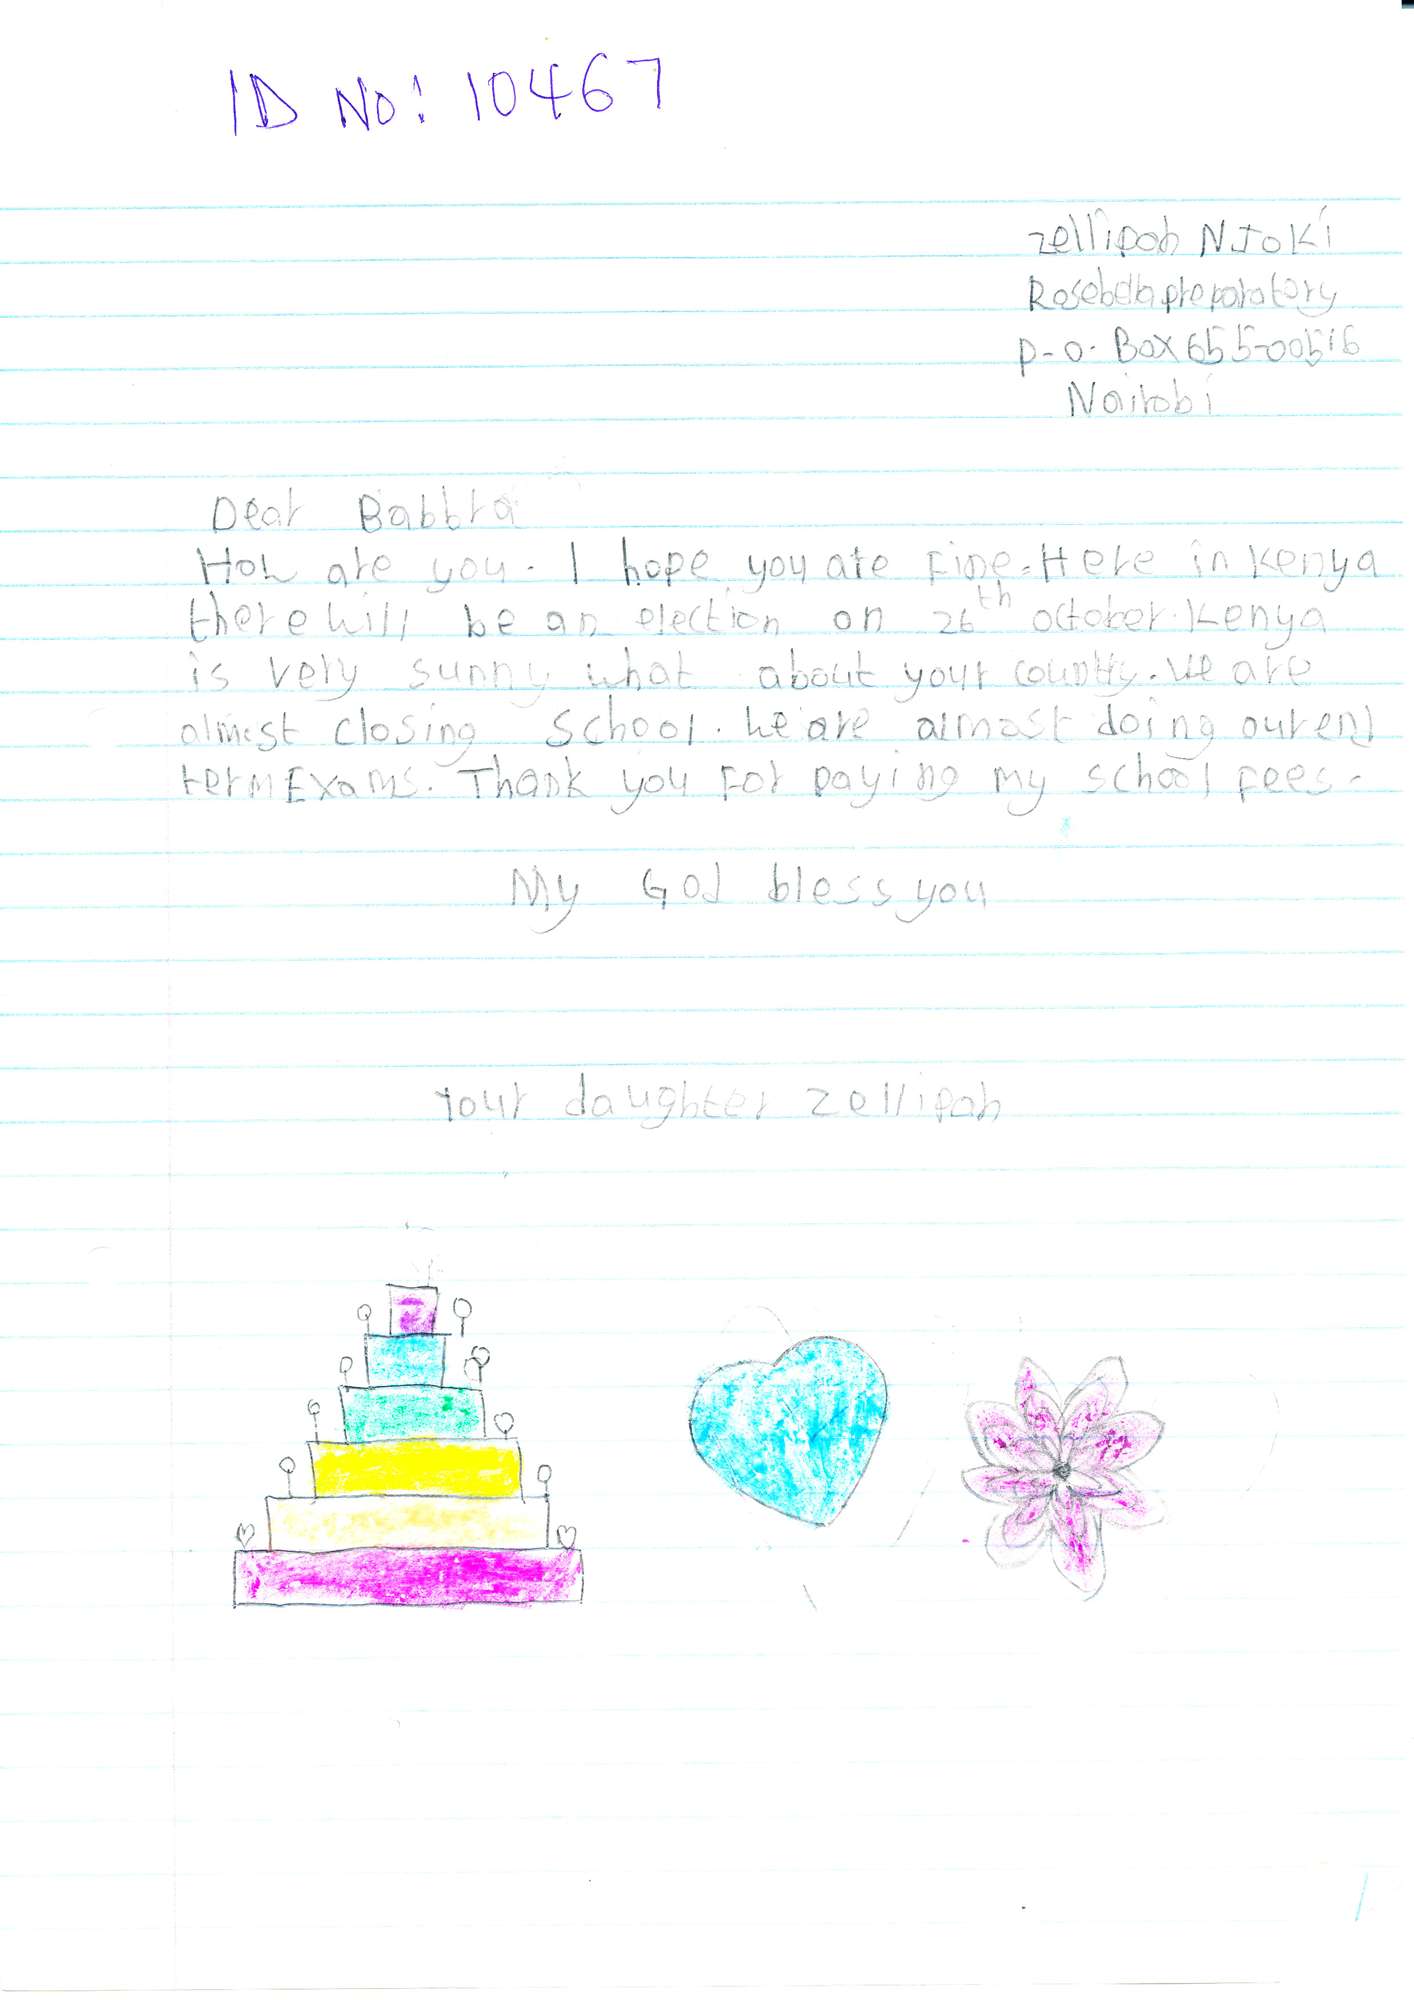 ID No: 10467
zellipah NJOKi
Rosebella preparatory
P-O. Box 655-00516
Nairobi
Dear Babbra
How are you. I hope you are Fine. Here in Kenya
there will be an election on 26th october. Kenya
is very sunny what about your country. We are
almost closing school. We are almost doing our end
term Exams. Thank you For paying my school fees.
My God bless you
Your daughter zellipah